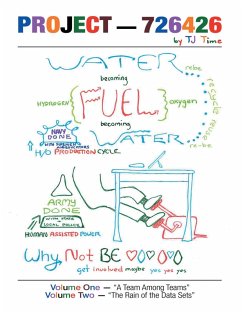 PROJECT — 726426
by TJ Time
WATER
rebe
becoming
HYDROGEN
FUEL
oxygen
becoming
recycle reuse
NAVY
DONE
WATER
re-be
H2O PRODUCTION CYCLE
ARMY
DONE
WITH STATE
LOCAL POLICE
HUMAN ASSISTED POWER
Why Not BE
get involved maybe yes yes yes
Volume One — "A Team Among Teams"
Volume Two — "The Rain of the Data Sets"